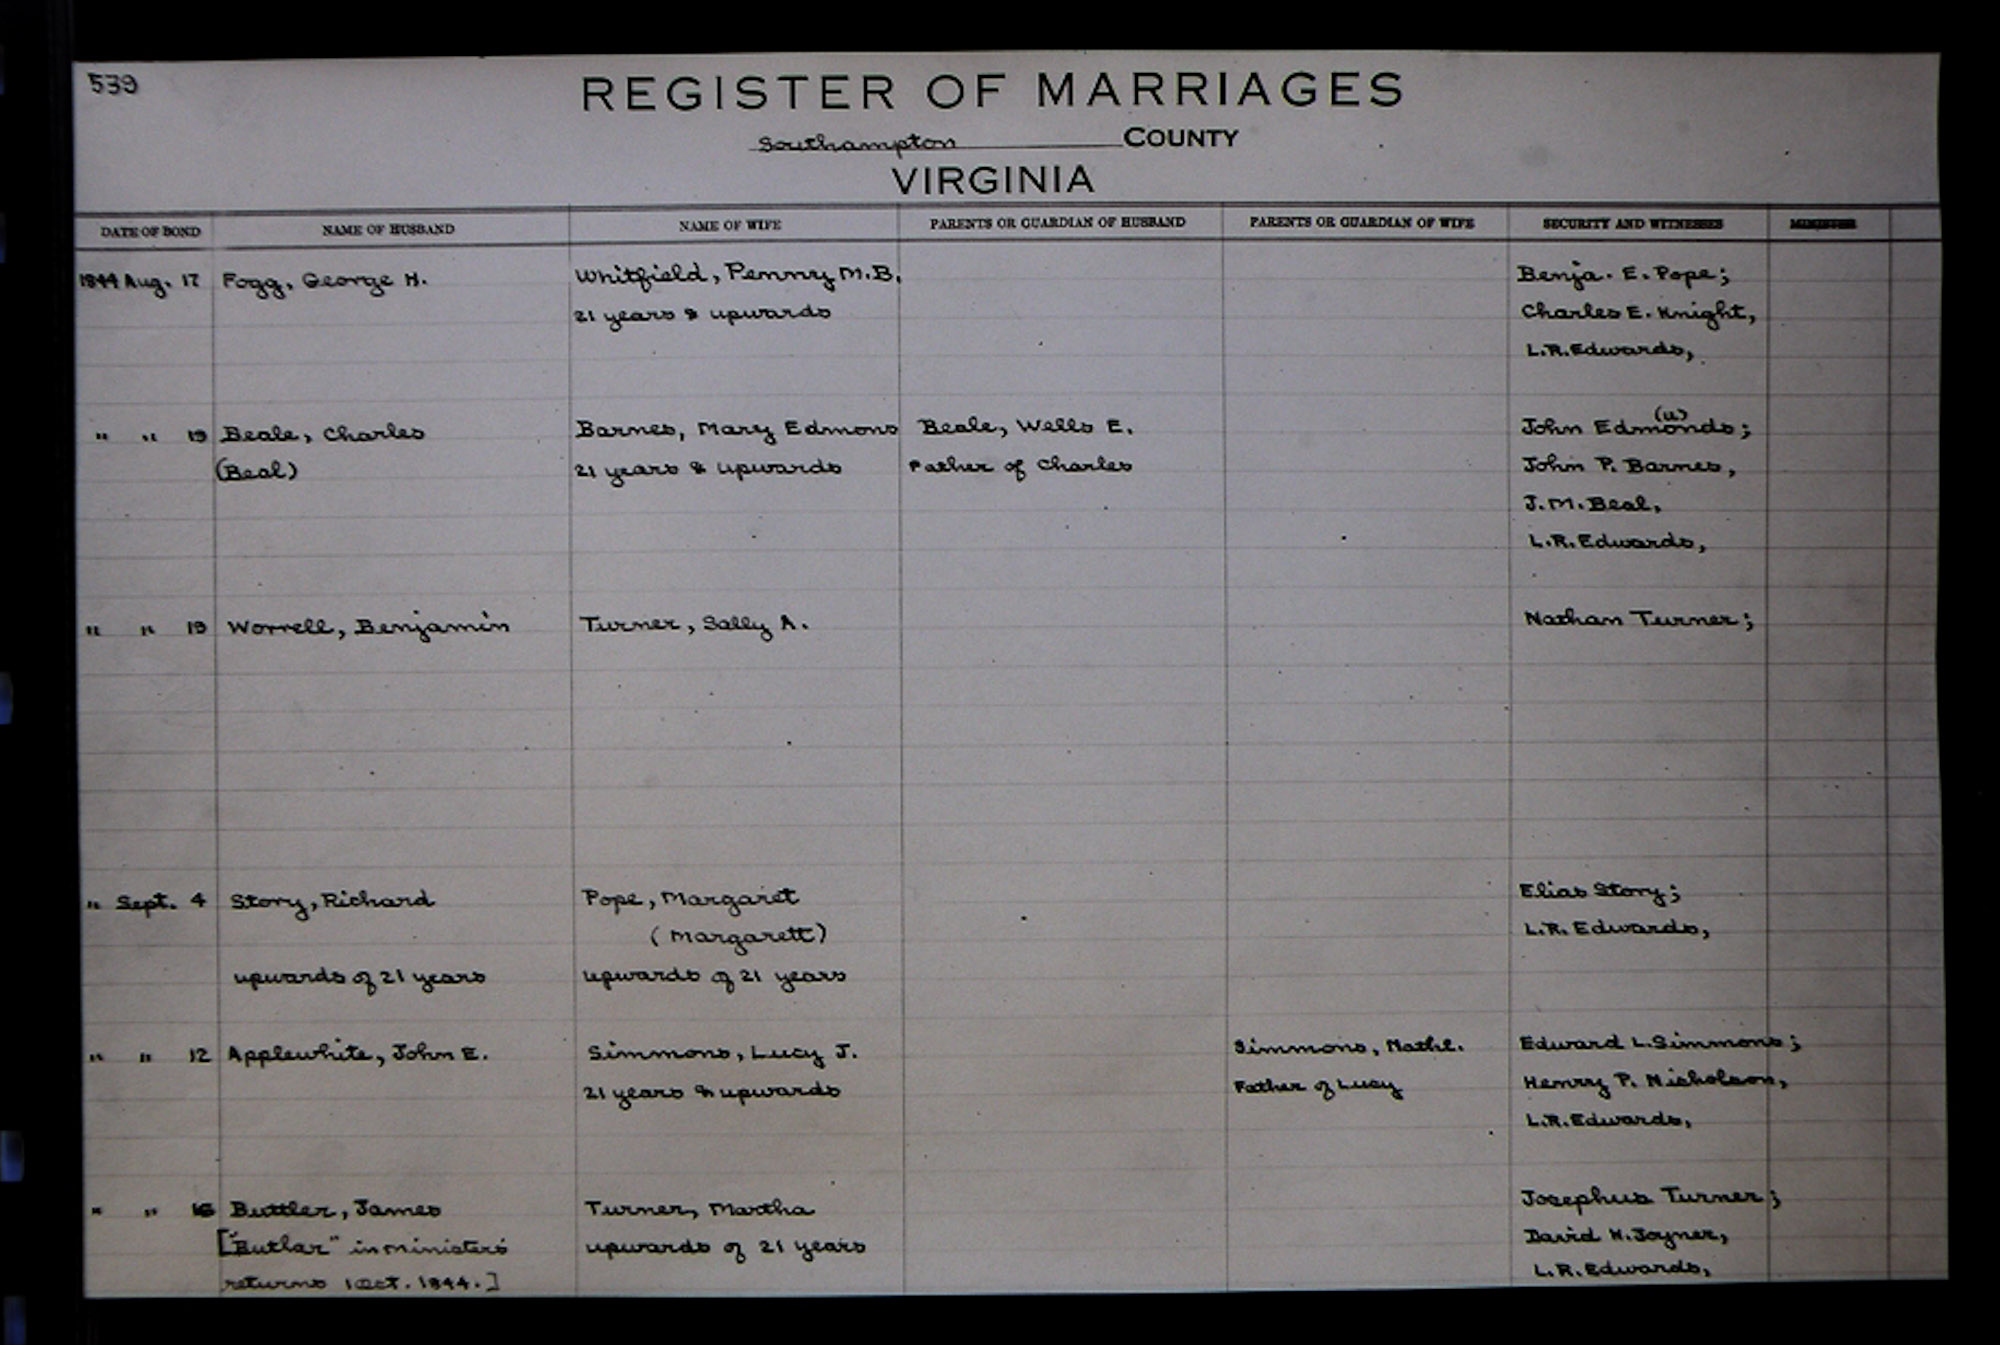 539
REGISTER OF MARRIAGES
Southampton COUNTY
VIRGINIA
DATE OF BOND NAME OF HUSBAND NAME OF WIFE PARENTS OR GUARDIAN OF HUSBAND PARENTS OR GUARDIAN OF WIFE SECURITY AND WITNESSES MINISTER
1844 Aug. 17 Fogg, George H. Whitfield, Penny M.B. Benja. E. Pope;
21 years & upwards Charles E. Knight,
L.R. Edwards,
" " 19 Beale, Charles Barnes, Mary Edmons Beale, Wells E. John Edmonds; (u)
(Beal) 21 years & upwards Father of Charles John P. Barnes,
J.M. Beal,
L.R. Edwards,
" " 19 Worrell, Benjamin Turner, Sally A. Nathan Turner;
" Sept. 4 Story, Richard Pope, Margaret Elias Story;
(Margarett) L.R. Edwards,
upwards of 21 years upwards of 21 years
" " 12 Applewhite, John E. Simmons, Lucy J. Simmons, Nathl. Edward L. Simmons;
21 years & upwards Father of Lucy Henry P. Nicholson,
L.R. Edwards,
" " 16 Buttler, James Turner, Martha Josephus Turner;
["Butlar" in ministers' upwards of 21 years David H. Joyner,
returns 1 Oct. 1844.] L.R. Edwards,